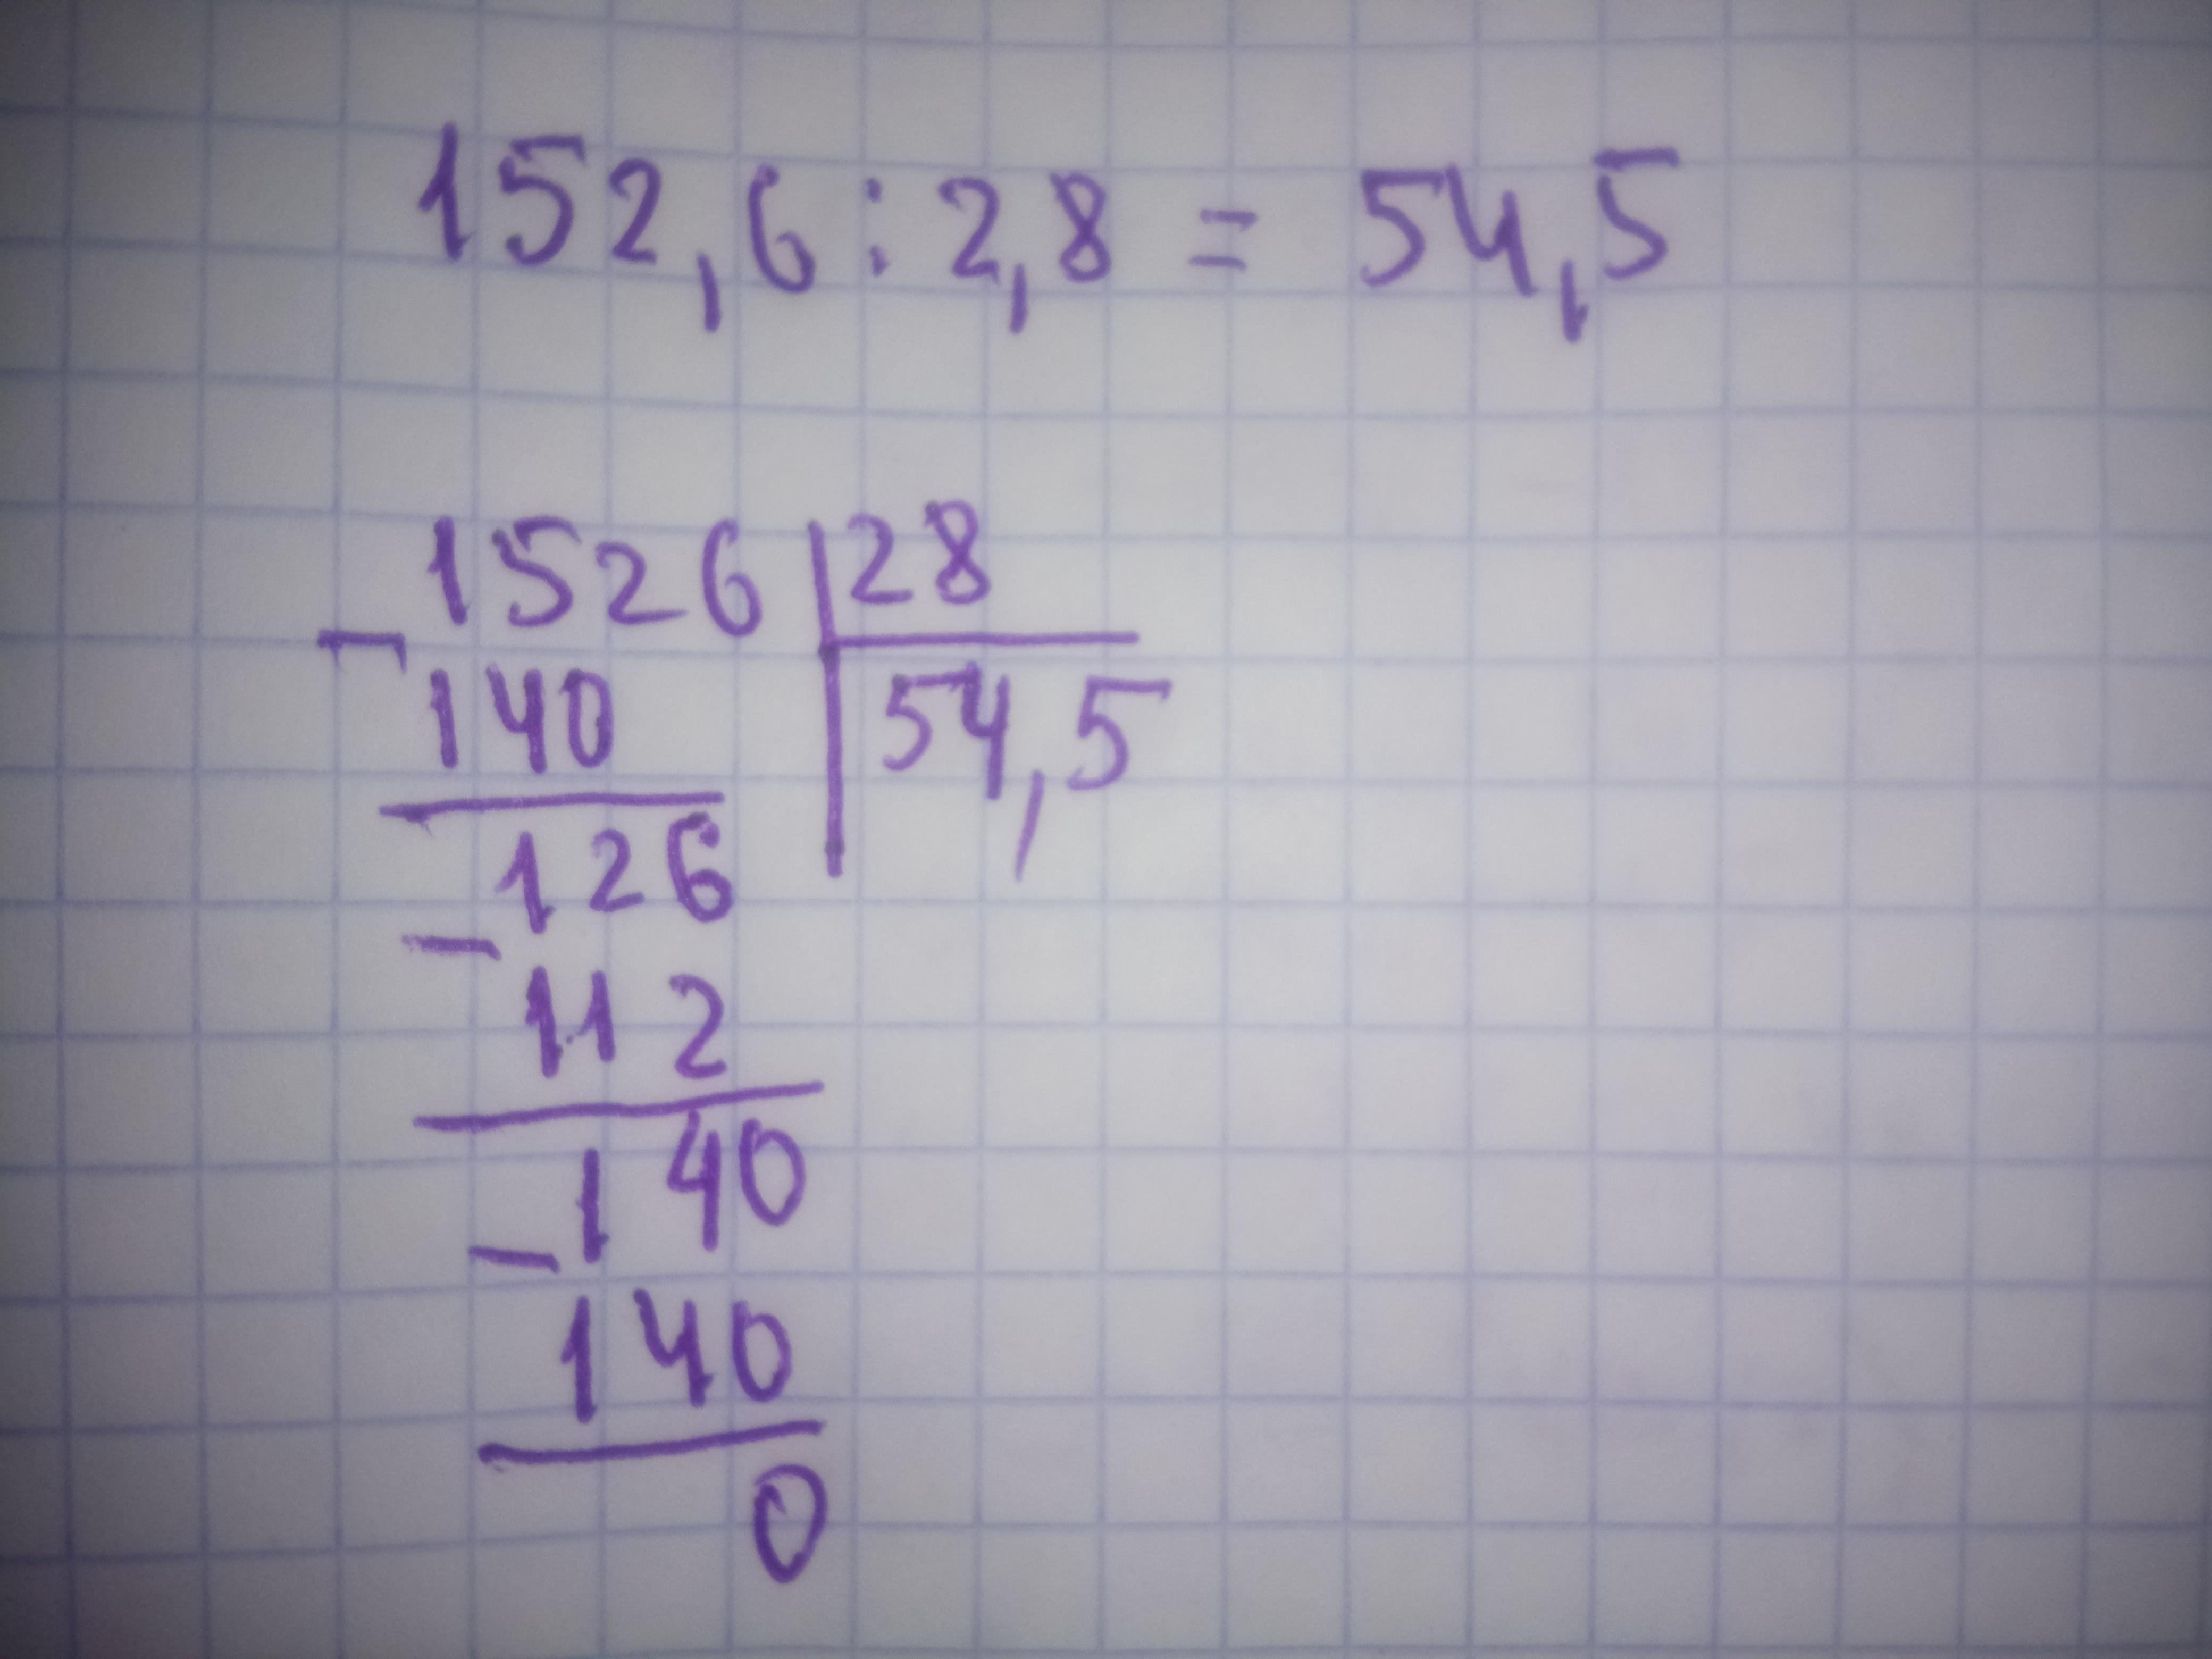 152,6 : 2,8 = 54,5
1526 28
- 140 54,5
126
- 112
140
- 140
0